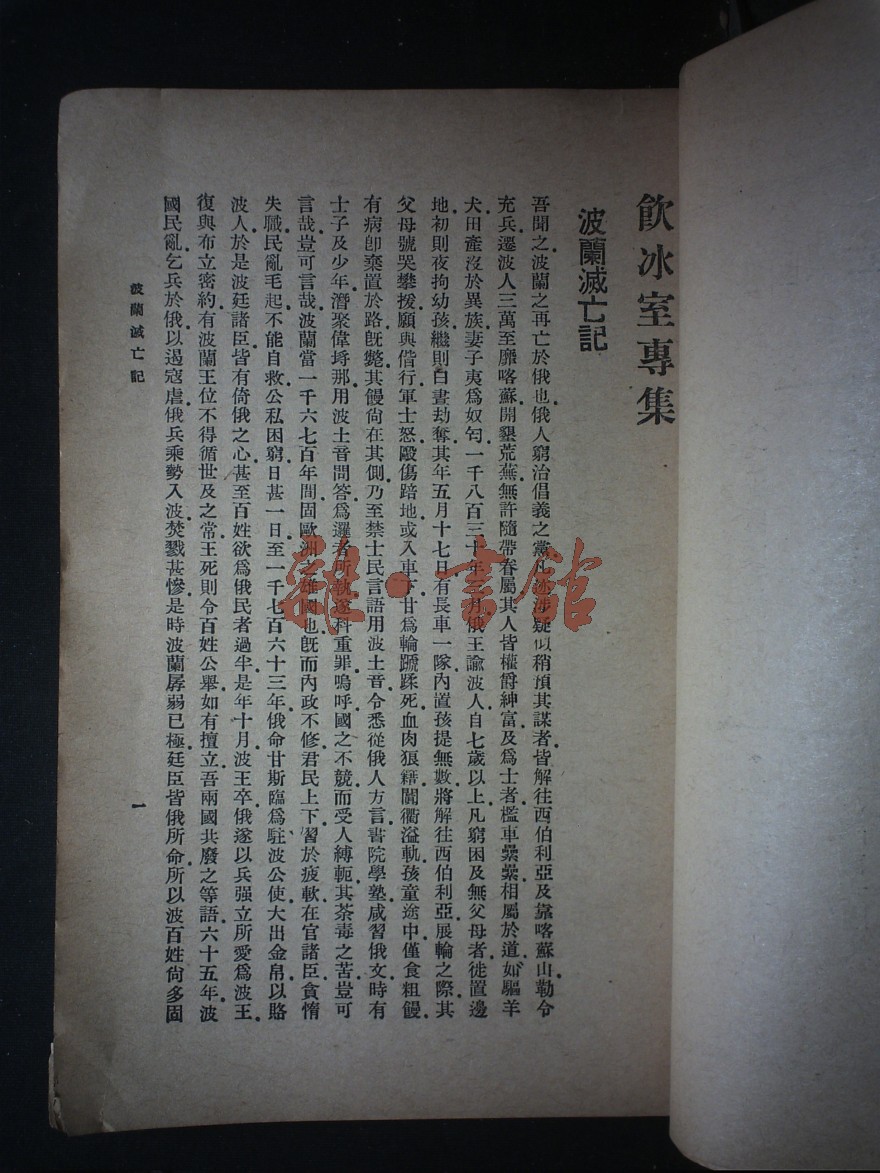 飮冰室專集
波蘭滅亡記
吾聞之波蘭之再亡於俄也俄人窮治倡義之黨凡迹涉疑似稍預其謀者皆解往西伯利亞及靠喀蘇山勒令
充兵遷波人三萬至靡喀蘇開墾荒蕪無許隨帶眷屬其人皆權爵紳富及爲士者檻車纍纍相屬於道如驅羊
犬田產沒於異族妻子夷爲奴匄一千八百三十年三月俄王諭波人自七歲以上凡窮困及無父母者徙置邊
地初則夜拘幼孩繼則白晝劫奪其年五月十七日有長車一隊內置孩提無數將解往西伯利亞展輪之際其
父母號哭攀援願與偕行軍士怒毆傷踣地或入車下甘爲輪蹏蹂死血肉狼藉闐衢溢軌孩童途中僅食粗饅
有病卽棄置於路旣斃其饅尙在其側乃至禁士民言語用波土音令悉從俄人方言書院學塾咸習俄文時有
士子及少年潛聚偉埓那用波土音問答爲邏者所執遂科重罪嗚呼國之不競而受人縛軛其荼毒之苦豈可
言哉豈可言哉波蘭當一千六七百年間固歐洲之雄國也旣而內政不修君民上下習於疲軟在官諸臣貪惰
失職民亂毛起不能自救公私困窮日甚一日至一千七百六十三年俄命甘斯臨爲駐波公使大出金帛以賂
波人於是波廷諸臣皆有倚俄之心甚至百姓欲爲俄民者過半是年十月波王卒俄遂以兵强立所愛爲波王
復與布立密約有波蘭王位不得循世及之常王死則令百姓公舉如有擅立吾兩國共廢之等語六十五年波
國民亂乞兵於俄以遏寇虐俄兵乘勢入波焚戮甚慘是時波蘭孱弱已極廷臣皆俄所命所以波百姓尙多固
波蘭滅亡記
一
雜·書館